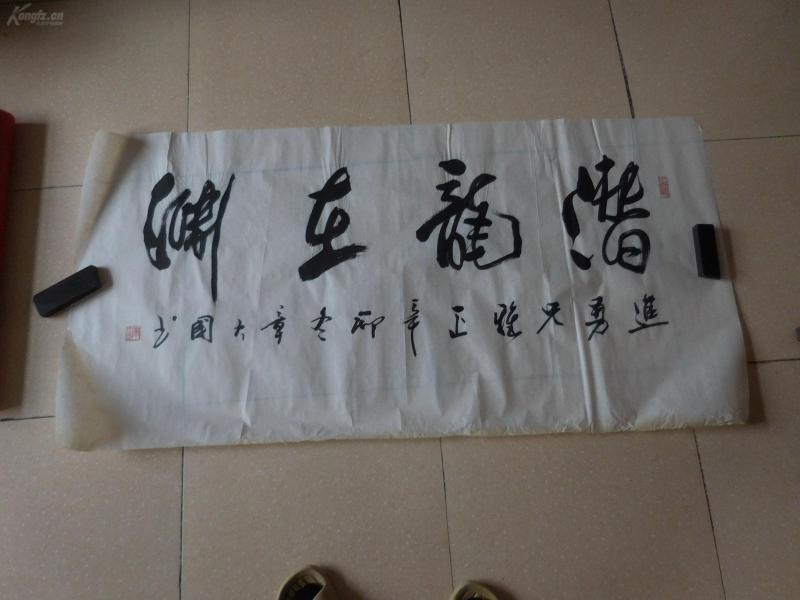 潛龍在淵
進勇兄雅正辛卯冬章大國书
Kongfz.cn